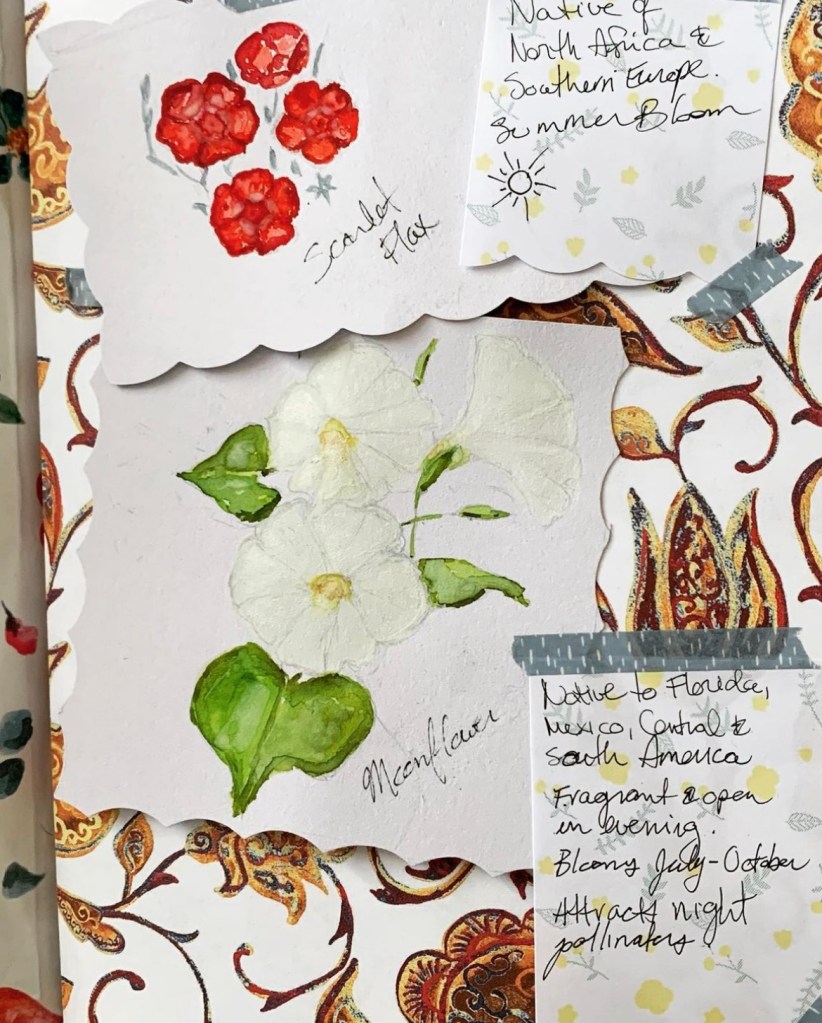 Native of
North Africa &
Southern Europe.
Summer Bloom
Scarlet
Flax
Moonflower
Native to Florida,
Mexico, Central &
South America
Fragrant & open
in evening.
Blooms July-October
Attracts night
pollinators!